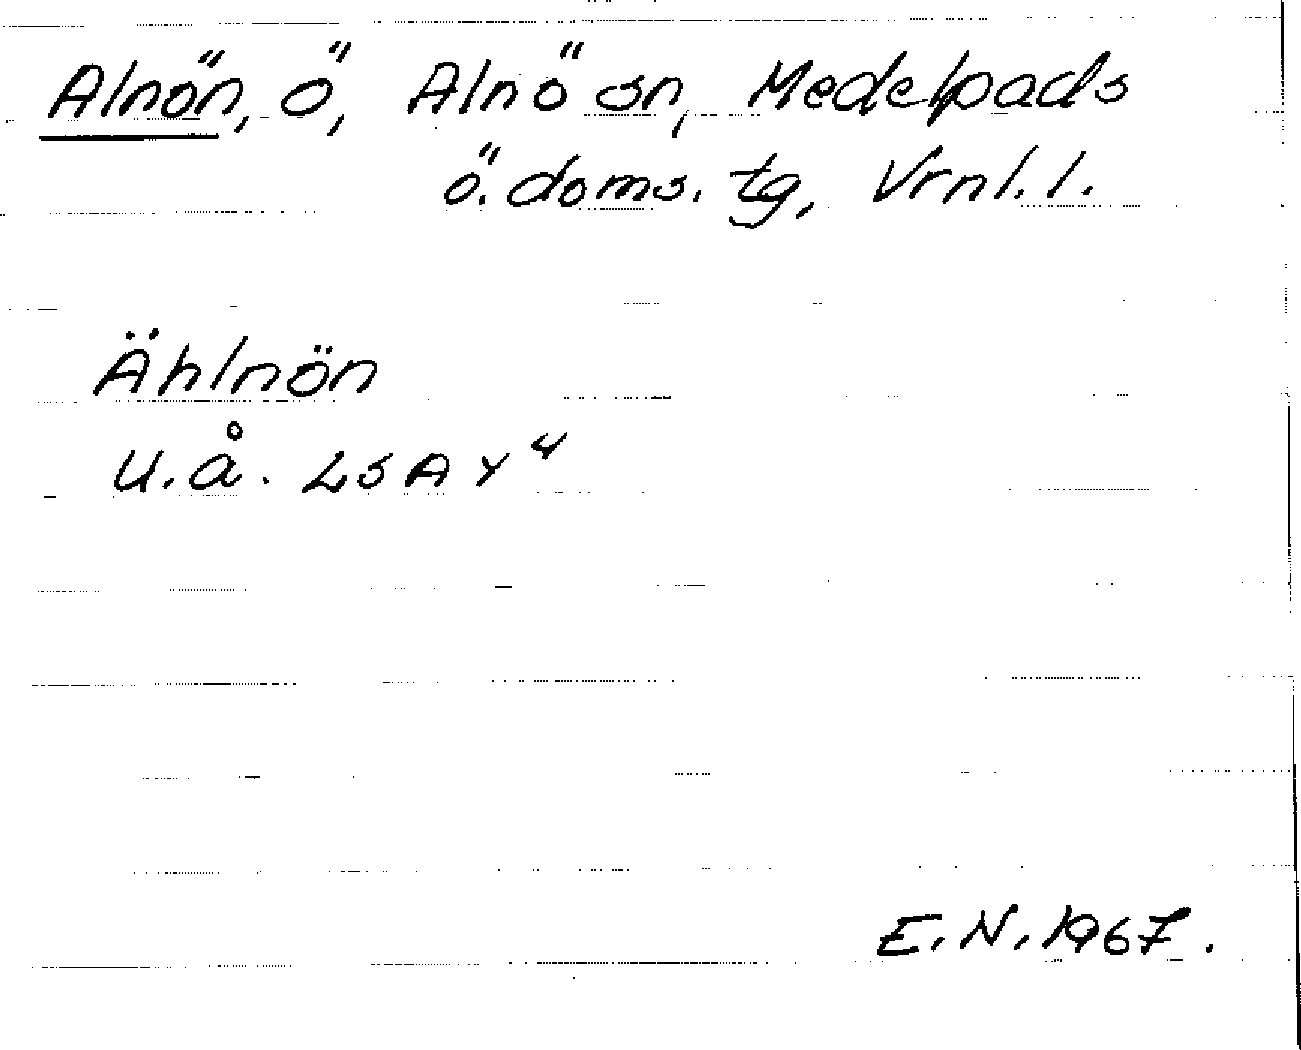 Alnön, ö, Alnö sn, Medelpads
ö. doms. tg, Vrnl. l.
Ählnön
u.å. LSA Y 4
E. N. 1967.